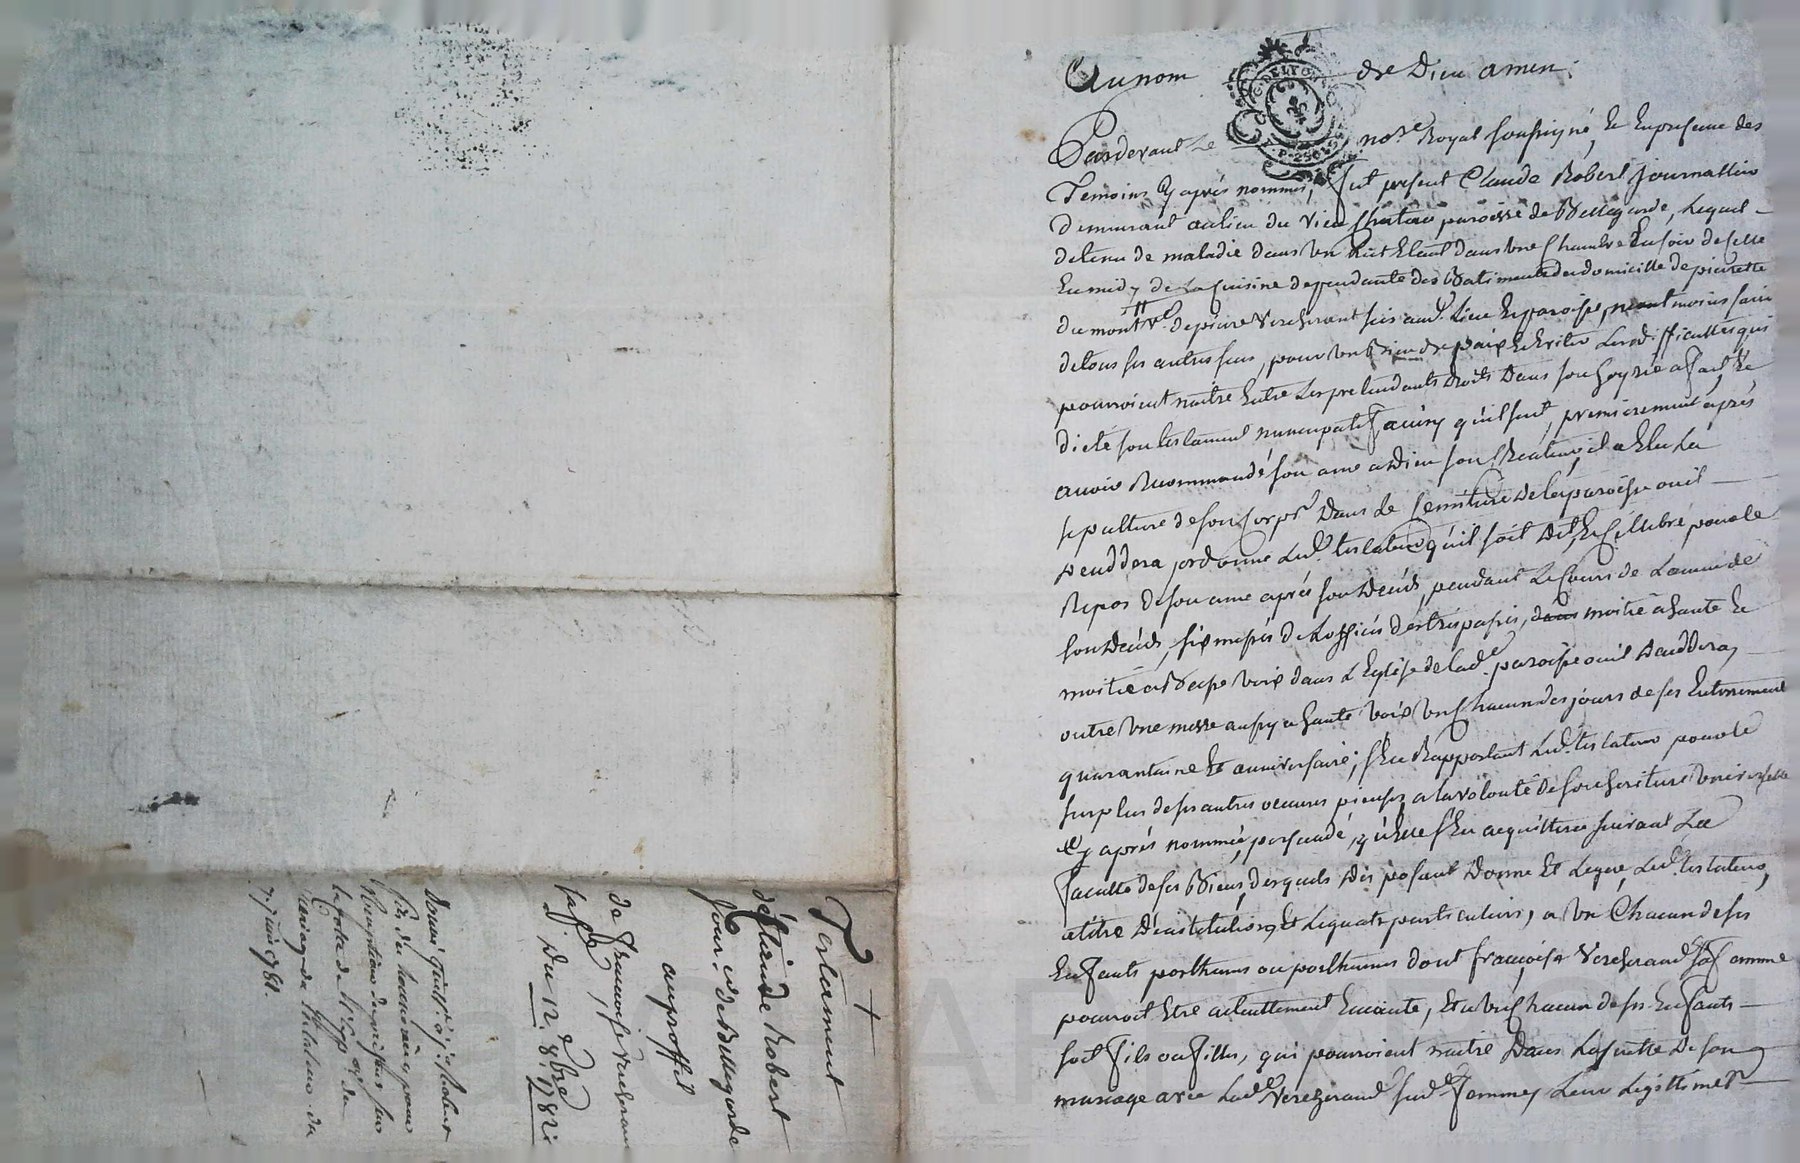 Au nom de Dieu amen.
Pardevant Le no.re Royal soussigné, Et En presence des
Temoins Cy après nommés, fut present Claude Robert journallier
demeurant au lieu du vieu Chateau paroisse de Bellegarde, Lequel
detenu de maladie dans un Lict Etant dans une Chambre
En midy de La Cuisine dependante des Batiments du domicille de pierrette
dumont v.e de pierre Verchrand sis aud. Lieu Et paroisse, neantmoins sain
de tous ses autres sens, pour un Bien de paix Et Eviter Les difficultes qui
pourroient naitre Entre Les pretendants droits Dans son hoyrie a fait Et
dicté son testament nuncupatif ainsy qu'il suit, premierement après
avoir Recommandé son ame a Dieu son Createur, il a Elu La
sepulture de son Corps Dans Le Semitiere de La paroisse ou il
Deceddera, ordonne Led. testateur qu'il soit Dit Et Cellebré pour le
Repos de son ame après son Deced, pendant Le Cours de L'année de
son Deced, six messes de L'office des trespassés, dans moitié a haute Et
moitié a Basse voix dans L'Eglise de Lad.e paroisse ou il Deceddera,
outre une messe aussy a haute voix un Chacun des jours de ses Enterrement
quarantaine Et anniversaire, s'En Rapportant Led. testateur pour le
surplus de ses autres oeuvres pieuses a la volonté de son heritiere universelle
Cy après nommée, persuadé, qu'Elle s'En acquittera suivant La
faculté de ses Biens, desquels Disposant Donne Et Legue, Led. testateur,
a titre D'institution, Et Leguats particuliers, a un Chacun de ses
Enfants posthumes ou posthumes dont françoise Verchrand sa femme
pourroit Etre actuellement Enceinte, Et a un Chacun de ses Enfants
soit fils ou filles, qui pourroient naitre Dans La suitte De son
mariage avec Lad.e Verchrand sad.e femme, Leur Legitime
Testament
de Claude Robert
jour. er de Bellegarde
au proffit
de francoise Verchrand
sa fe.
Du 12. 8bre 1782.
donné quitt.